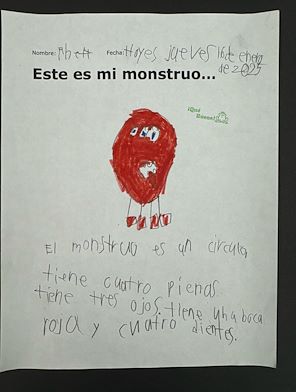 Nombre: Rhett Fecha: Hoyes jueves 16 de enero
de 2025
Este es mi monstruo...
¡Qué
Bueno!
El monstruo es un circulo
tiene cuatro piernas.
tiene tres ojos. tiene una boca
roja y cuatro dientes.